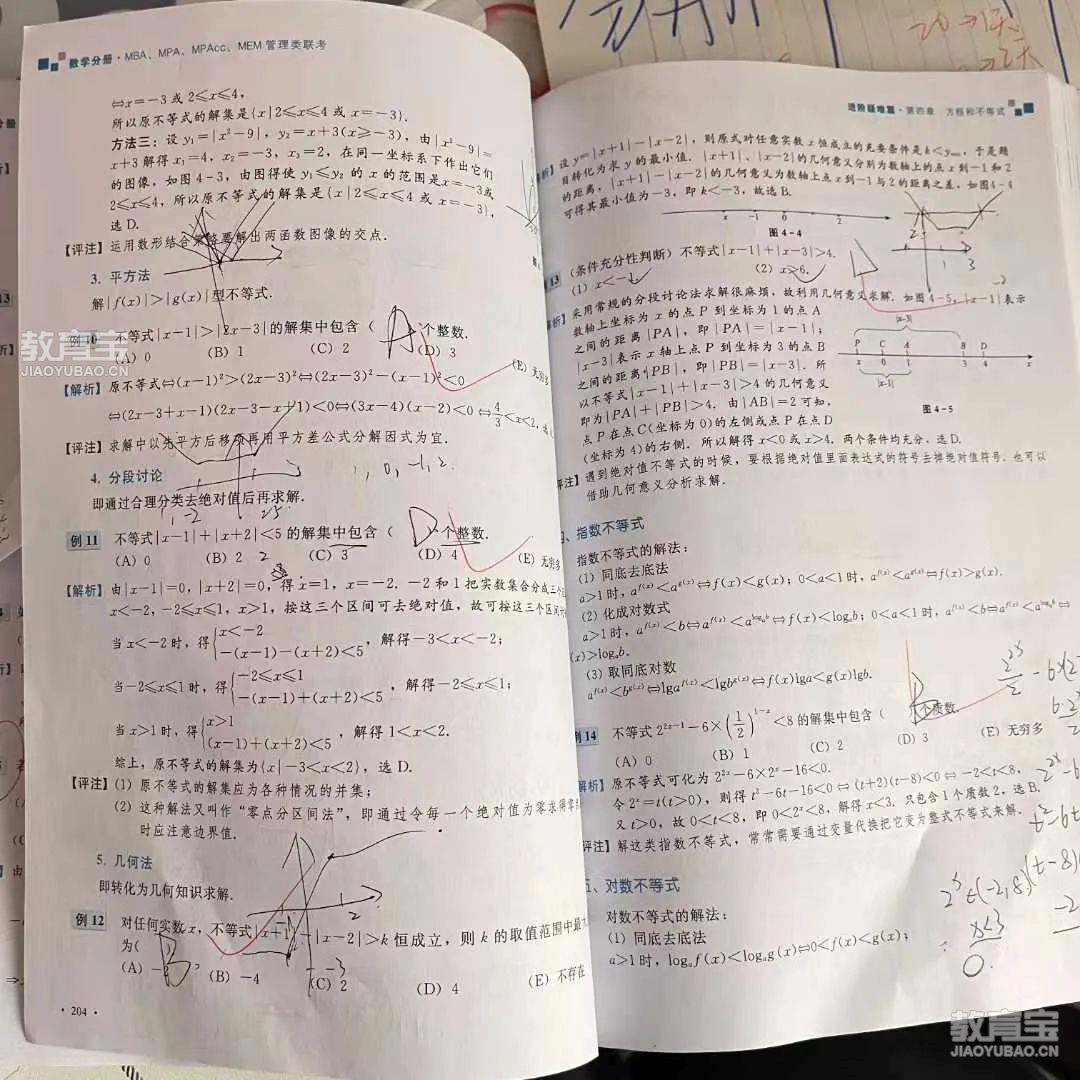 数学分册·MBA、MPA、MPAcc、MEM管理类联考
⇔x=-3或2≤x≤4,
所以原不等式的解集是{x|2≤x≤4或x=-3}.
方法三：设y₁=|x²-9|，y₂=x+3(x≥-3)，由|x²-9|=
x+3解得x₁=4，x₂=-3，x₃=2，在同一坐标系下作出它们
的图像，如图4-3，由图得使y₁≤y₂的x的范围是x=-3或
2≤x≤4，所以原不等式的解集是{x|2≤x≤4或x=-3}，
选D.
【评注】运用数形结合 要解出两函数图像的交点.
3. 平方法
解|f(x)|>|g(x)|型不等式.
例10 不等式|x-1|>|2x-3|的解集中包含( A )个整数.
(A) 0 (B) 1 (C) 2 (D) 3 (E) 无穷多
【解析】原不等式⇔(x-1)²>(2x-3)²⇔(2x-3)²-(x-1)²<0
⇔(2x-3+x-1)(2x-3-x+1)<0⇔(3x-4)(x-2)<0⇔4/3<x<2,
【评注】求解中以先平方后移项再用平方差公式分解因式为宜.
4. 分段讨论
1, 0, -1, 2
即通过合理分类去绝对值后再求解.
1, -2
例11 不等式|x-1|+|x+2|<5的解集中包含( D )个整数.
(A) 0 (B) 2 2 (C) 3 (D) 4 (E) 无穷多
【解析】由|x-1|=0，|x+2|=0，得x=1，x=-2. -2和1把实数集合分成三个
x<-2，-2≤x≤1，x>1，按这三个区间可去绝对值，故可按这三个区间
当x<-2时，得{x<-2
-(x-1)-(x+2)<5，解得-3<x<-2；
当-2≤x≤1时，得{-2≤x≤1
-(x-1)+(x+2)<5，解得-2≤x≤1；
当x>1时，得{x>1
(x-1)+(x+2)<5，解得1<x<2.
综上，原不等式的解集为{x|-3<x<2}，选D.
【评注】(1) 原不等式的解集应为各种情况的并集；
(2) 这种解法又叫作“零点分区间法”，即通过令每一个绝对值为零求得零
时应注意边界值.
5. 几何法
即转化为几何知识求解.
1 2
例12 对任何实数x，不等式|x+1|-|x-2|>k恒成立，则k的取值范围中最大
为( B
(A) - (B) -4 (C) 2 (D) 4 (E) 不存在
-3
·204·
进阶疑难篇·第四章 方程和不等式
设y=|x+1|-|x-2|，则原式对任意实数x恒成立的充要条件是k<yₘᵢₙ，于是题
目转化为求y的最小值. |x+1|、|x-2|的几何意义分别为数轴上的点x到-1和2
的距离，|x+1|-|x-2|的几何意义为数轴上点x到-1与2的距离之差，如图4-4
可得其最小值为-3，即k<-3，故选B.
x -1 0 2
图4-4
2
1 3
13 (条件充分性判断) 不等式|x-1|+|x-3|>4.
(1) x<-1 (2) x>6.
采用常规的分段讨论法求解很麻烦，故利用几何意义求解. 如图4-5，|x-1|表示
-2
数轴上坐标为x的点P到坐标为1的点A
之间的距离|PA|，即|PA|=|x-1|；
|x-3|表示x轴上点P到坐标为3的点B
之间的距离|PB|，即|PB|=|x-3|. 所
以不等式|x-1|+|x-3|>4的几何意义
即为|PA|+|PB|>4. 由|AB|=2可知，
点P在点C(坐标为0)的左侧或点P在点D
(坐标为4)的右侧. 所以解得x<0或x>4. 两个条件均充分，选D.
|x-3|
P C A B D
x 0 1 3 4 x
|x-1|
图4-5
遇到绝对值不等式的时候，要根据绝对值里面表达式的符号去掉绝对值符号，也可以
借助几何意义分析求解.
指数不等式
指数不等式的解法：
(1) 同底去底法
a>1时，a^f(x)<a^g(x)⇔f(x)<g(x)；0<a<1时，a^f(x)<a^g(x)⇔f(x)>g(x).
(2) 化成对数式
a>1时，a^f(x)<b⇔a^f(x)<a^(logₐb)⇔f(x)<logₐb；0<a<1时，a^f(x)<b⇔a^f(x)<a^(logₐb)⇔
(x)>logₐb.
(3) 取同底对数
a^f(x)<b^g(x)⇔lga^f(x)<lgb^g(x)⇔f(x)lga<g(x)lgb.
例14 不等式2^(2x-1)-6×(1/2)^(1-x)<8的解集中包含( B )个质数.
(A) 0 (B) 1 (C) 2 (D) 3 (E) 无穷多
原不等式可化为2^(2x)-6×2^x-16<0.
令2^x=t(t>0)，则得t²-6t-16<0⇔(t+2)(t-8)<0⇔-2<t<8，
又t>0，故0<t<8，即0<2^x<8，解得x<3，只包含1个质数2，选B.
解这类指数不等式，常常需要通过变量代换把它变为整式不等式来解.
对数不等式
对数不等式的解法：
(1) 同底去底法
a>1时，logₐf(x)<logₐg(x)⇔0<f(x)<g(x)；
(t-8)
x<3
0.
教育宝
JIAOYUBAO.CN
教育宝
JIAOYUBAO.CN